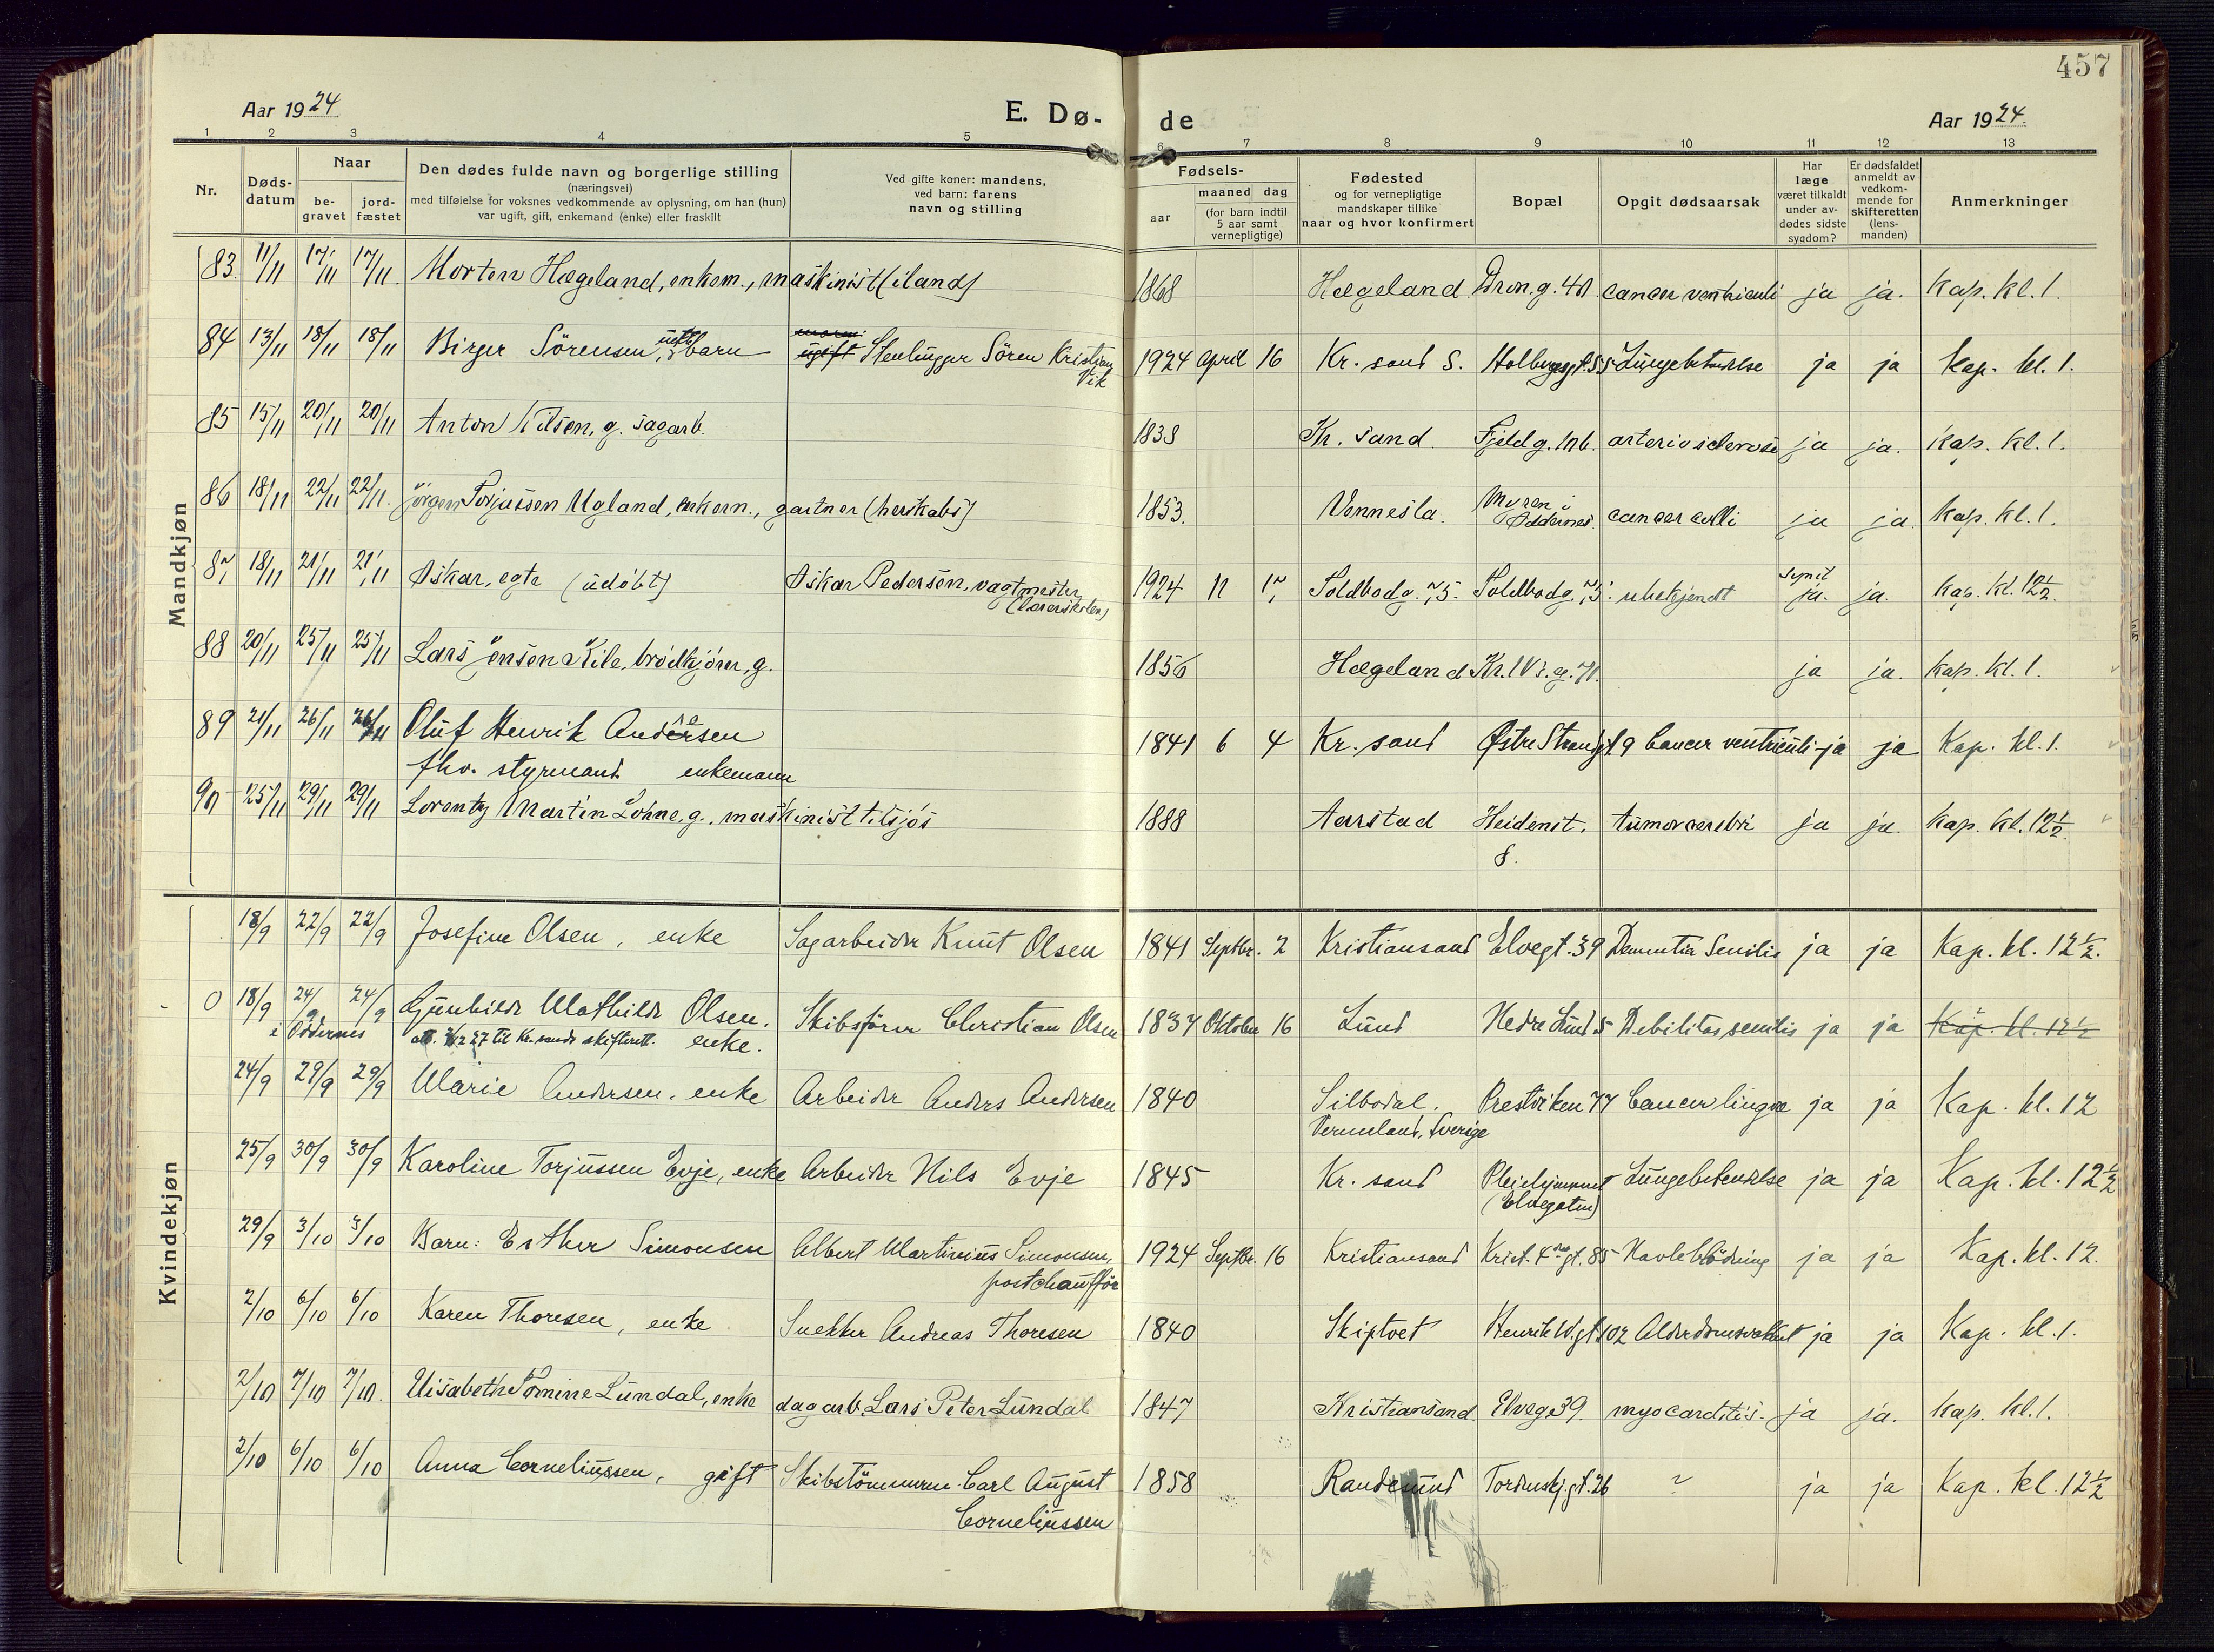 457
Aar 1924
E. Dø-
de
Aar 1924.
1 2 3 4 5 6 7 8 9 10 11 12 13
Nr.
Døds-
datum
Naar
be-
gravet
jord-
fæstet
Den dødes fulde navn og borgerlige stilling
(næringsvei)
med tilføielse for voksnes vedkommende av oplysning, om han (hun)
var ugift, gift, enkemand (enke) eller fraskilt
Ved gifte koner: mandens,
ved barn: farens
navn og stilling
Fødsels-
aar
maaned dag
(for barn indtil
5 aar samt
vernepligtige)
Fødested
og for vernepligtige
mandskaper tillike
naar og hvor konfirmert
Bopæl
Opgit dødsaarsak
Har
læge
været tilkaldt
under av-
dødes sidste
sygdom?
Er dødsfaldet
anmeldt av
vedkom-
mende for
skifteretten
(lens-
manden)
Anmerkninger
Mandkjøn
83. 11/11 17/11 17/11. Morten Hægeland, enkem., maskinist (iland) 1868 Hægeland Dron. g. 40 cancer ventriculi ja ja. Kap. kl. 1.
84 13/11 18/11 18/11 Birger Sörensen, barn ugift Stenhugger Sören Kristian 1924 April 16 Kr. sand S. Holbergsgt. 5 Lungebetændelse ja ja Kap. kl. 1.
Vik
85 15/11 20/11 20/11 Anton Nilsen, g. sagarb. 1838 Kr. sand. Fjeldg. 10b. arteriosclerose ja ja. Kap. kl. 1.
86 18/11 22/11 22/11. Jörgen Torjussen Ugland, enkem., gartner (herskabs) 1853. Vennesla. Myren i ja ja. Kap. kl. 1.
Oddernes. cancer colli
87 18/11 21/11 21/11 Oskar, egte (udöbt) Oskar Pedersen, vagtmester 1924 11 17 Toldbodg. 75. Toldbodg. 75. ubekjendt ja. ja. Kap. kl. 12 1/2.
88 20/11 25/11 25/11 Lars Jensen Kile, brödkjörer, g. 1856 Hægeland Kr. IV's. g. 71. ja ja. Kap. kl. 1.
89 21/11 26/11 26/11 Oluf Henrik Andersen 1841 6 4 Kr. sand Østre Strandgt. 9 Cancer ventriculi ja ja Kap. kl. 1.
fhv. styrmand enkemann
90 25/11 29/11 29/11 Lorentz Martin Lohne, g., maskinist tilsjös 1888 Aarstad Heidenst. tumor cerebri ja ja. Kap. kl. 12 1/2.
8.
Kvindekjøn
18/9 22/9 22/9 Josefine Olsen, enke Sagarbeider Knut Olsen 1841 Septbr. 2 Kristiansand Elvegt. 39 Dementia Senilis ja ja Kap. kl. 12 1/2.
0 18/9 24/9 24/9 Gunhild Mathilde Olsen. Skibsförer Christian Olsen 1834 Oktober 16 Lund Nedre Lund 5 Debilitas senilis ja ja Kap. kl. 12 1/2
i Oddernes til Kr. sands skifterett. enke.
24/9 29/9 29/9 Marie Andersen. enke Arbeider Anders Andersen 1840 Silbodal. Prestviken 77 Cancer lingvæ ja ja Kap. kl. 12
Vermland, Sverige
25/9 30/9 30/9 Karoline Torjussen Evje, enke Arbeider Nils Evje 1845 Kr. sand Pleiehjemmet Lungebetændelse ja ja Kap. kl. 12 1/2
(Elvegaten)
29/9 3/10 3/10 Barn: Esther Simonsen Albert Martinius Simonsen, 1924 Septbr. 16 Kristiansand Krist. 4des gt. 85 Navleblödning ja ja Kap. kl. 12.
postchaufför
2/10 6/10 6/10 Karen Thoresen, enke Snekker Andreas Thoresen 1840 Skiptvet Henrik W. gt 102 Alderdomssvakhet ja ja Kap. kl. 1.
2/10 7/10 7/10. Elisabeth Tomine Lundal, enke dagarb. Lars Peter Lundal 1847 Kristiansand Elveg. 39. myocarditis. ja ja. Kap. kl. 1.
2/10 6/10 6/10 Anna Corneliussen, gift Skibstömmerm. Carl August 1858 Randesund Tordenskj. gt. 26 ? ja ja Kap. kl. 12 1/2
Corneliussen